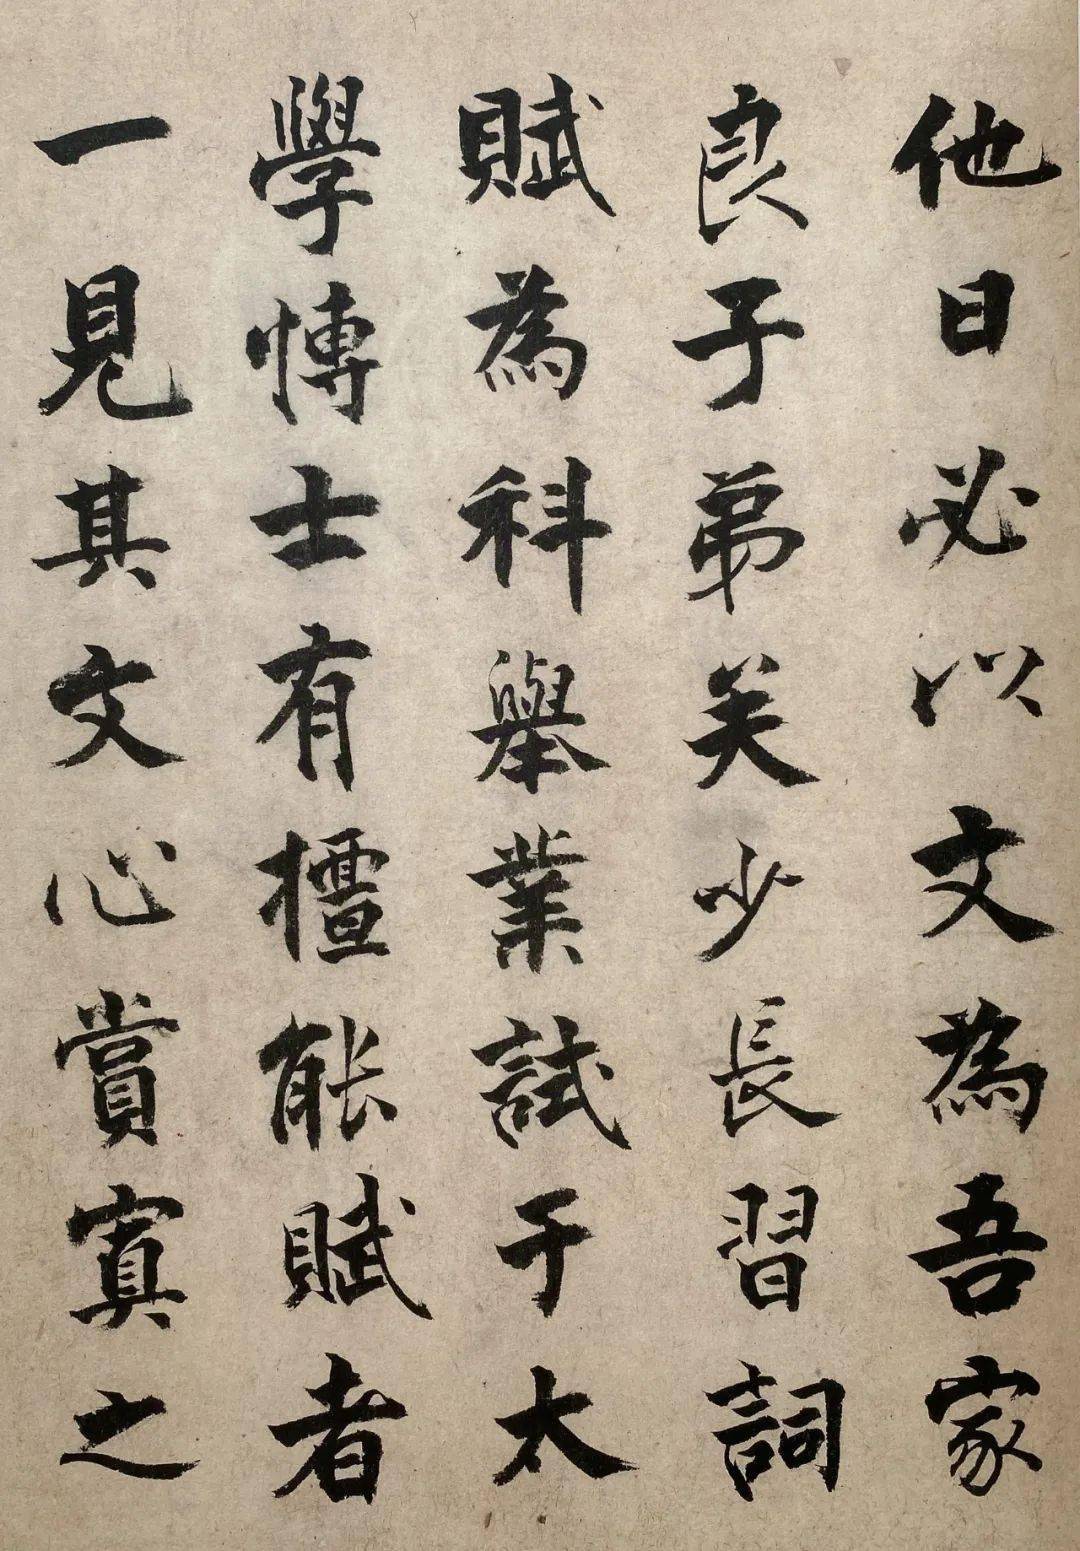 他日必以文為吾家
良子弟矣少長習詞
賦為科舉業試于太
學博士有擅能賦者
一見其文心賞寘之